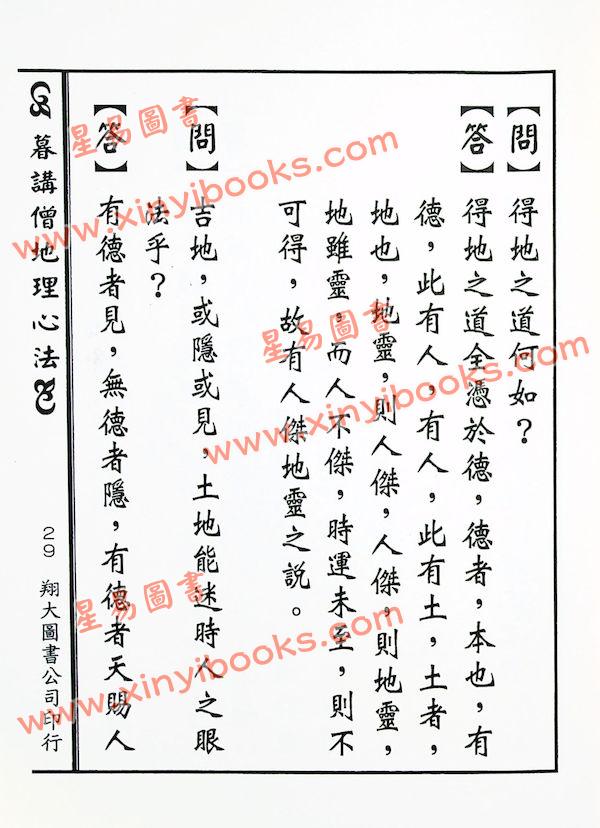 【問】得地之道何如？
【答】得地之道全憑於德，德者，本也，有
德，此有人，有人，此有土，土者，
地也，地靈，則人傑，人傑，則地靈，
地雖靈，而人不傑，時運未至，則不
可得，故有人傑地靈之說。
【問】吉地，或隱或見，土地能迷時人之眼
法乎？
【答】有德者見，無德者隱，有德者天賜人
暮講僧地理心法
29
翔大圖書公司印行
星易圖書
www.xinyibooks.com
星易圖書
www.xinyibooks.com
星易圖書
www.xinyibooks.com